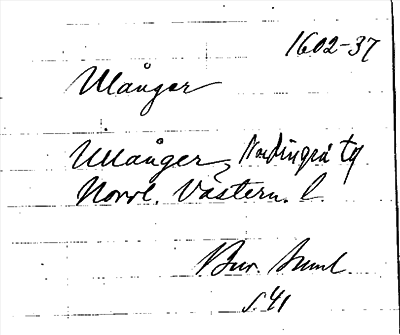 1602-37
Ullånger
Ullånger, Nordingrå tg
Norrl. Västern. l.
Bur. Suml.
s. 41